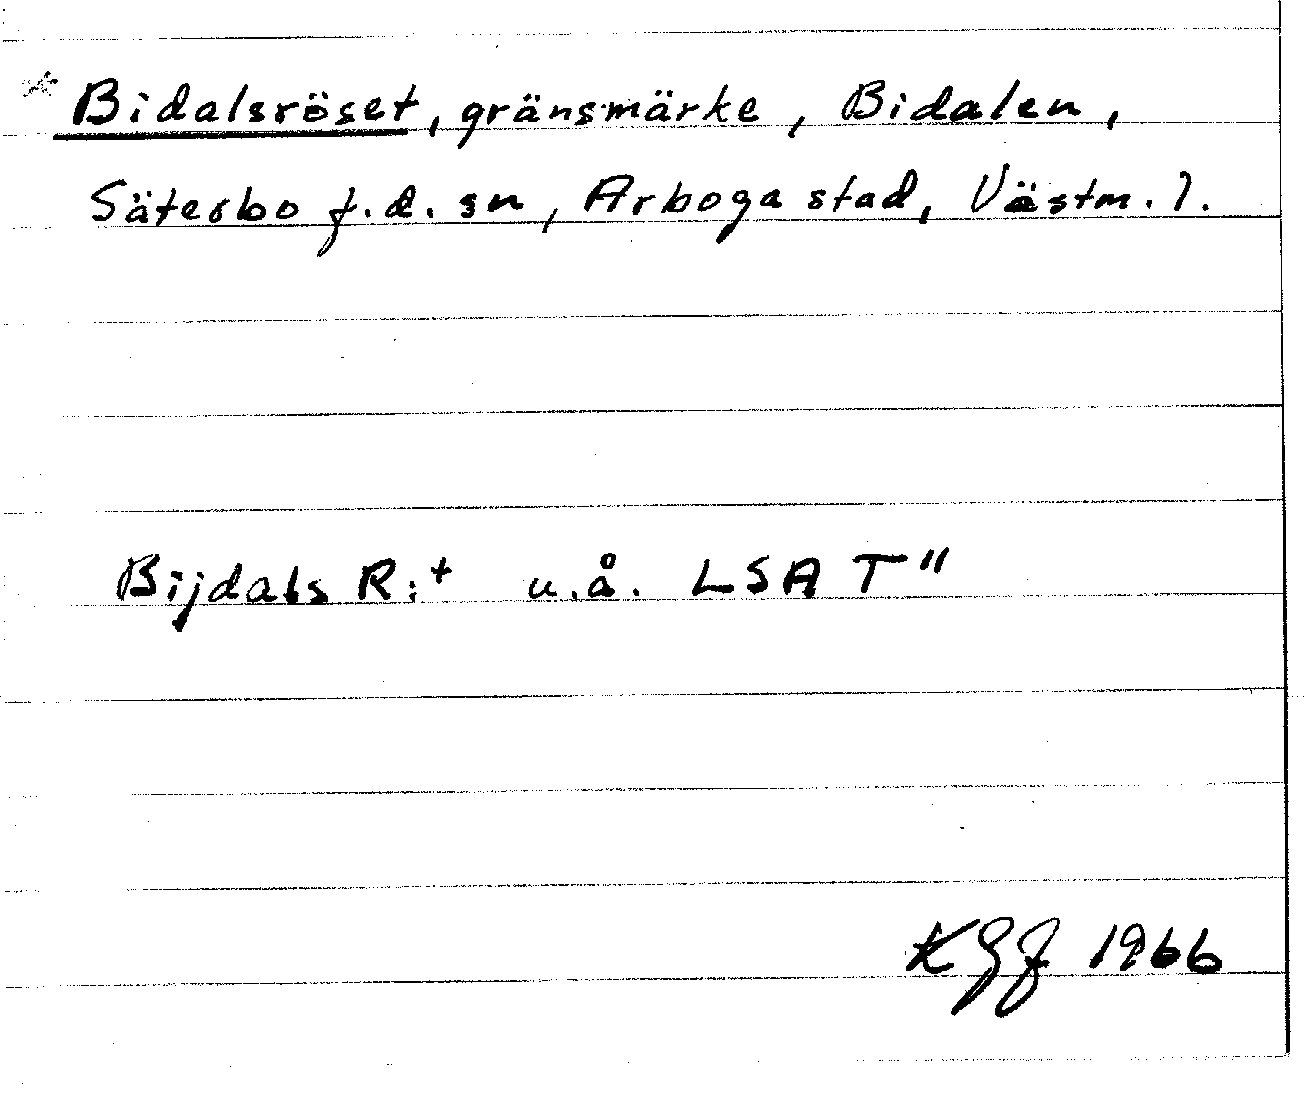 * Bidalsröset, gränsmärke, Bidalen,
Säterbo f.d. sn, Arboga stad, Västm. l.
Bijdals R:t u.å. LSA T"
KGF 1966